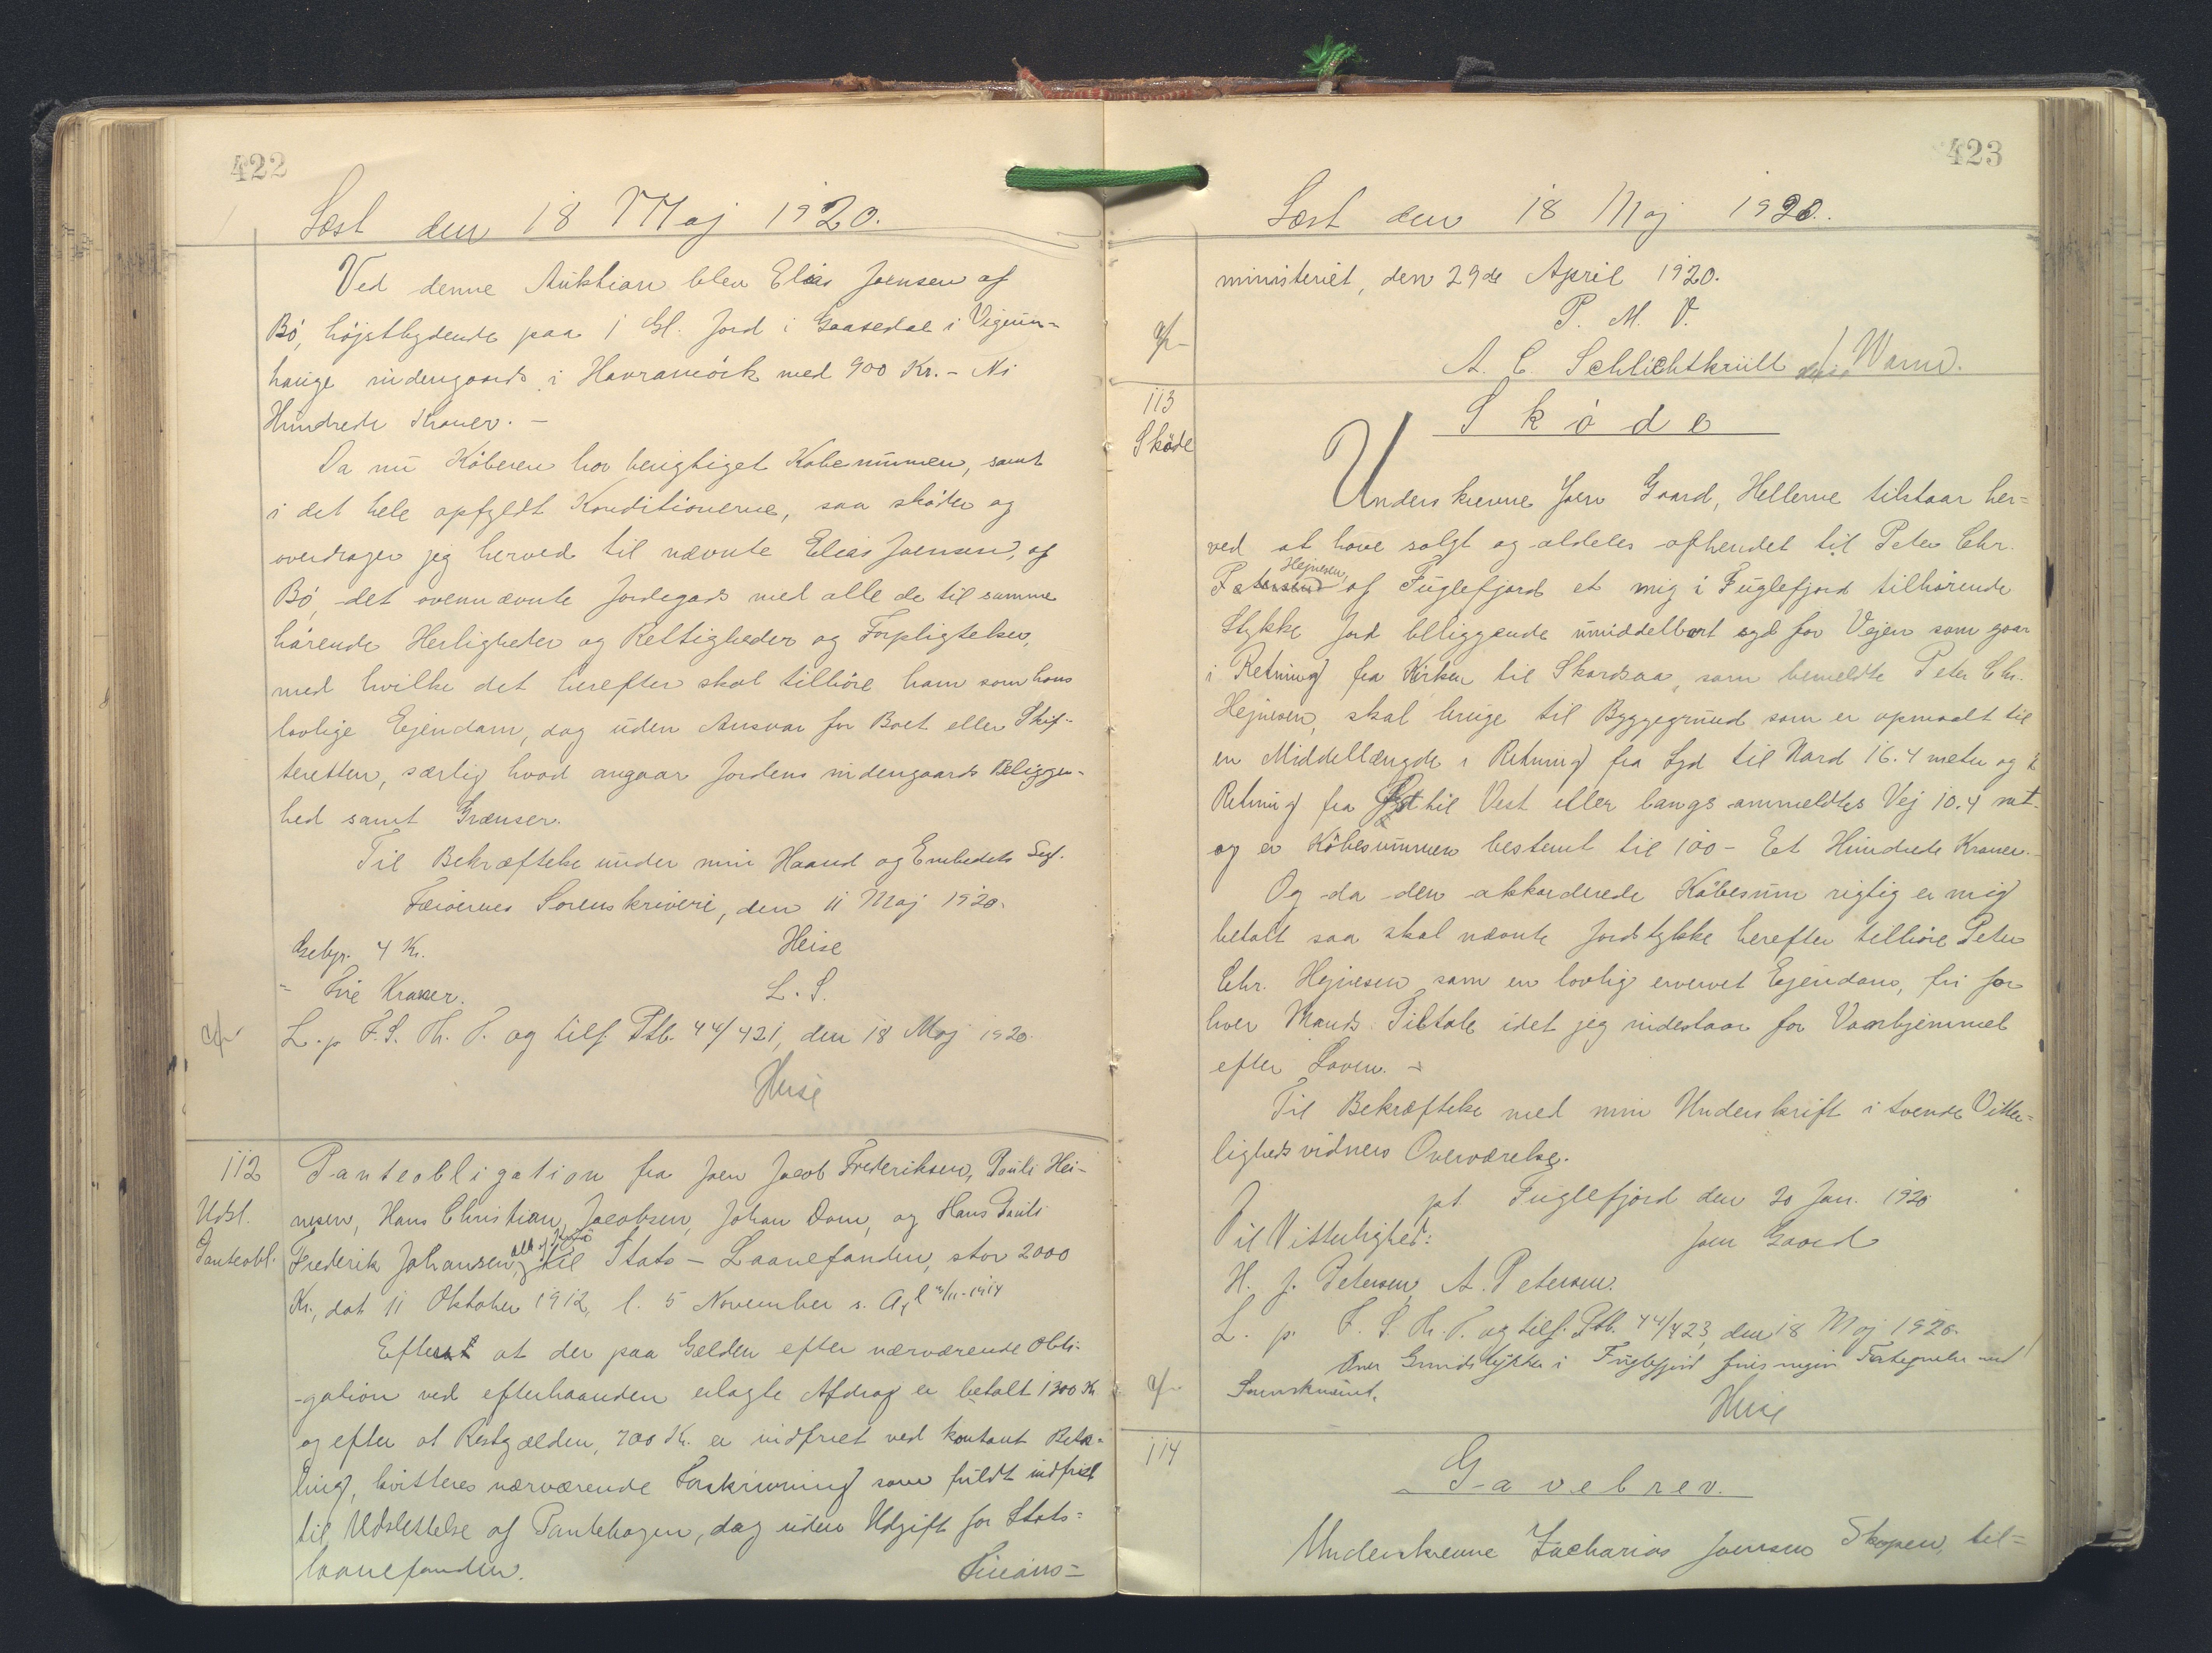 422
Læst den 18 Maj 1920.
Ved denne Auktion blev Elias Joensen af
Bö, höjstbydende paa 1 Gl. Jord i Gaasedal i Vigeun-
hauge indengaards i Havramörk med 900 Kr. - Ni
Hundrede Kroner. -
Da nu Köberen har berigtiget Köbesummen, samt
i det hele opfyldt Konditionerne, saa sköder og
overdrager jeg herved til nævnte Elias Joensen, af
Bö, det ovennævnte Jordegods med alle de til samme
hörende Herligheder og Rettigheder og Forpligtelser,
med hvilke det herefter skal tilhöre ham som hans
lovlige Ejendom, dog uden Ansvar for Boet eller Skif-
teretten, særlig hvad angaar Jordens indengaards Beliggen-
hed samt Grænser.
Til Bekræftelse under min Haand og Embedets Segl.
Færöernes Sorenskriveri, den 11 Maj 1920.
Gebyr. 4 Kr. Heise
- Fire Kroner. L. S.
L. p. F. S. Th. P. og tilf. Ptb. 44/421, den 18 Maj 1920.
Heise
112
Udsl.
Panteobl.
Panteobligation fra Joen Jacob Frederiksen, Pauli Hei-
nesen, Hans Christian Jacobsen, Johan Dam, og Hans Pauli
Frederik Johansen, alle af til Stats-Laanefonden, stor 2000
Kr., dat 11 Oktober 1912, l. 5 November s. A.
Efter at der paa Gælden efter nærværende Obli-
-gation ved efterhaanden erlagte Afdrag er betalt 1300 Kr
og efter at Restgælden, 700 Kr. er indfriet ved kontant Beta-
ling, kvitteres nærværende Forskrivning som fuldt indfriet
til Udslettelse af Pantebogen, dog uden Udgift for Stats-
laanefonden. Finans-
423
Læst den 18 Maj 1920.
ministeriet, den 29de April 1920.
P. M. V.
A. C. Schlichtkrull
113
Sköde
Sköde
Underskrevne Joen Gaard, Hellerne tilstaar her-
ved at have solgt og aldeles afhendet til Peter Chr.
Petersen Hejnesen, af Fuglefjord et mig i Fuglefjord tilhörende
Stykke Jord beliggende umiddelbart syd for Vejen som gaar
i Retning fra Kirken til Skardsaa, som bemeldte Peter Chr.
Hejnesen, skal bruge til Byggegrund, som er opmaalt til
en Middellængde i Retning fra Syd til Nord 16.4 meter og i
Retning fra Öst til Vest eller langs anmeldtes Vej 10.4 mt.
og er Köbesummen bestemt til 100 - Et Hundrede Kroner.
Og da den akkorderede Köbesum rigtig er mig
betalt saa skal nævnte Jordstykke herefter tilhöre Peter
Chr. Hejnesen som en lovlig erhvervet Ejendom, fri for
hver Mands Tiltale idet jeg indestaar for Vanhjemmel
efter Loven. -
Til Bekræftelse med min Underskrift i tvende Vitter-
lighedsvidners Overværelse.
pt. Fuglefjord den 20 Jan. 1920
Til Vitterlighed: Joen Gaard
H. J. Petersen, A. Petersen.
L. p. F. S. Th. P. og tilf. Ptb. 44/423, den 18 Maj 1920.
Over Grundstykker i Fuglefjord föres ingen Fortegnelse ved
Sorenskriveriet.
Heise
114
Gavebrev.
Underskrevne Zacharias Joensen Skopen, til-